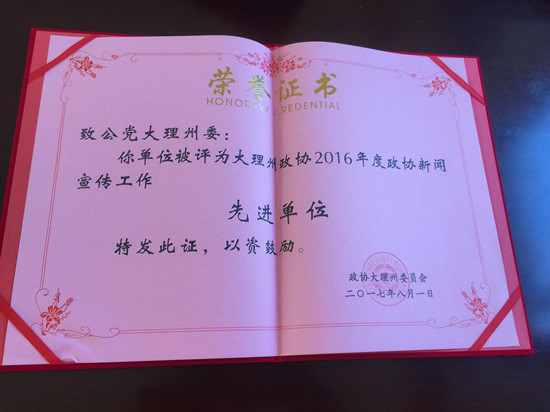 荣誉证书
HONOR CREDENTIAL
致公党大理州委：
你单位被评为大理州政协2016年度政协新闻
宣传工作
先进单位
特发此证，以资鼓励。
政协大理州委员会
二〇一七年八月一日